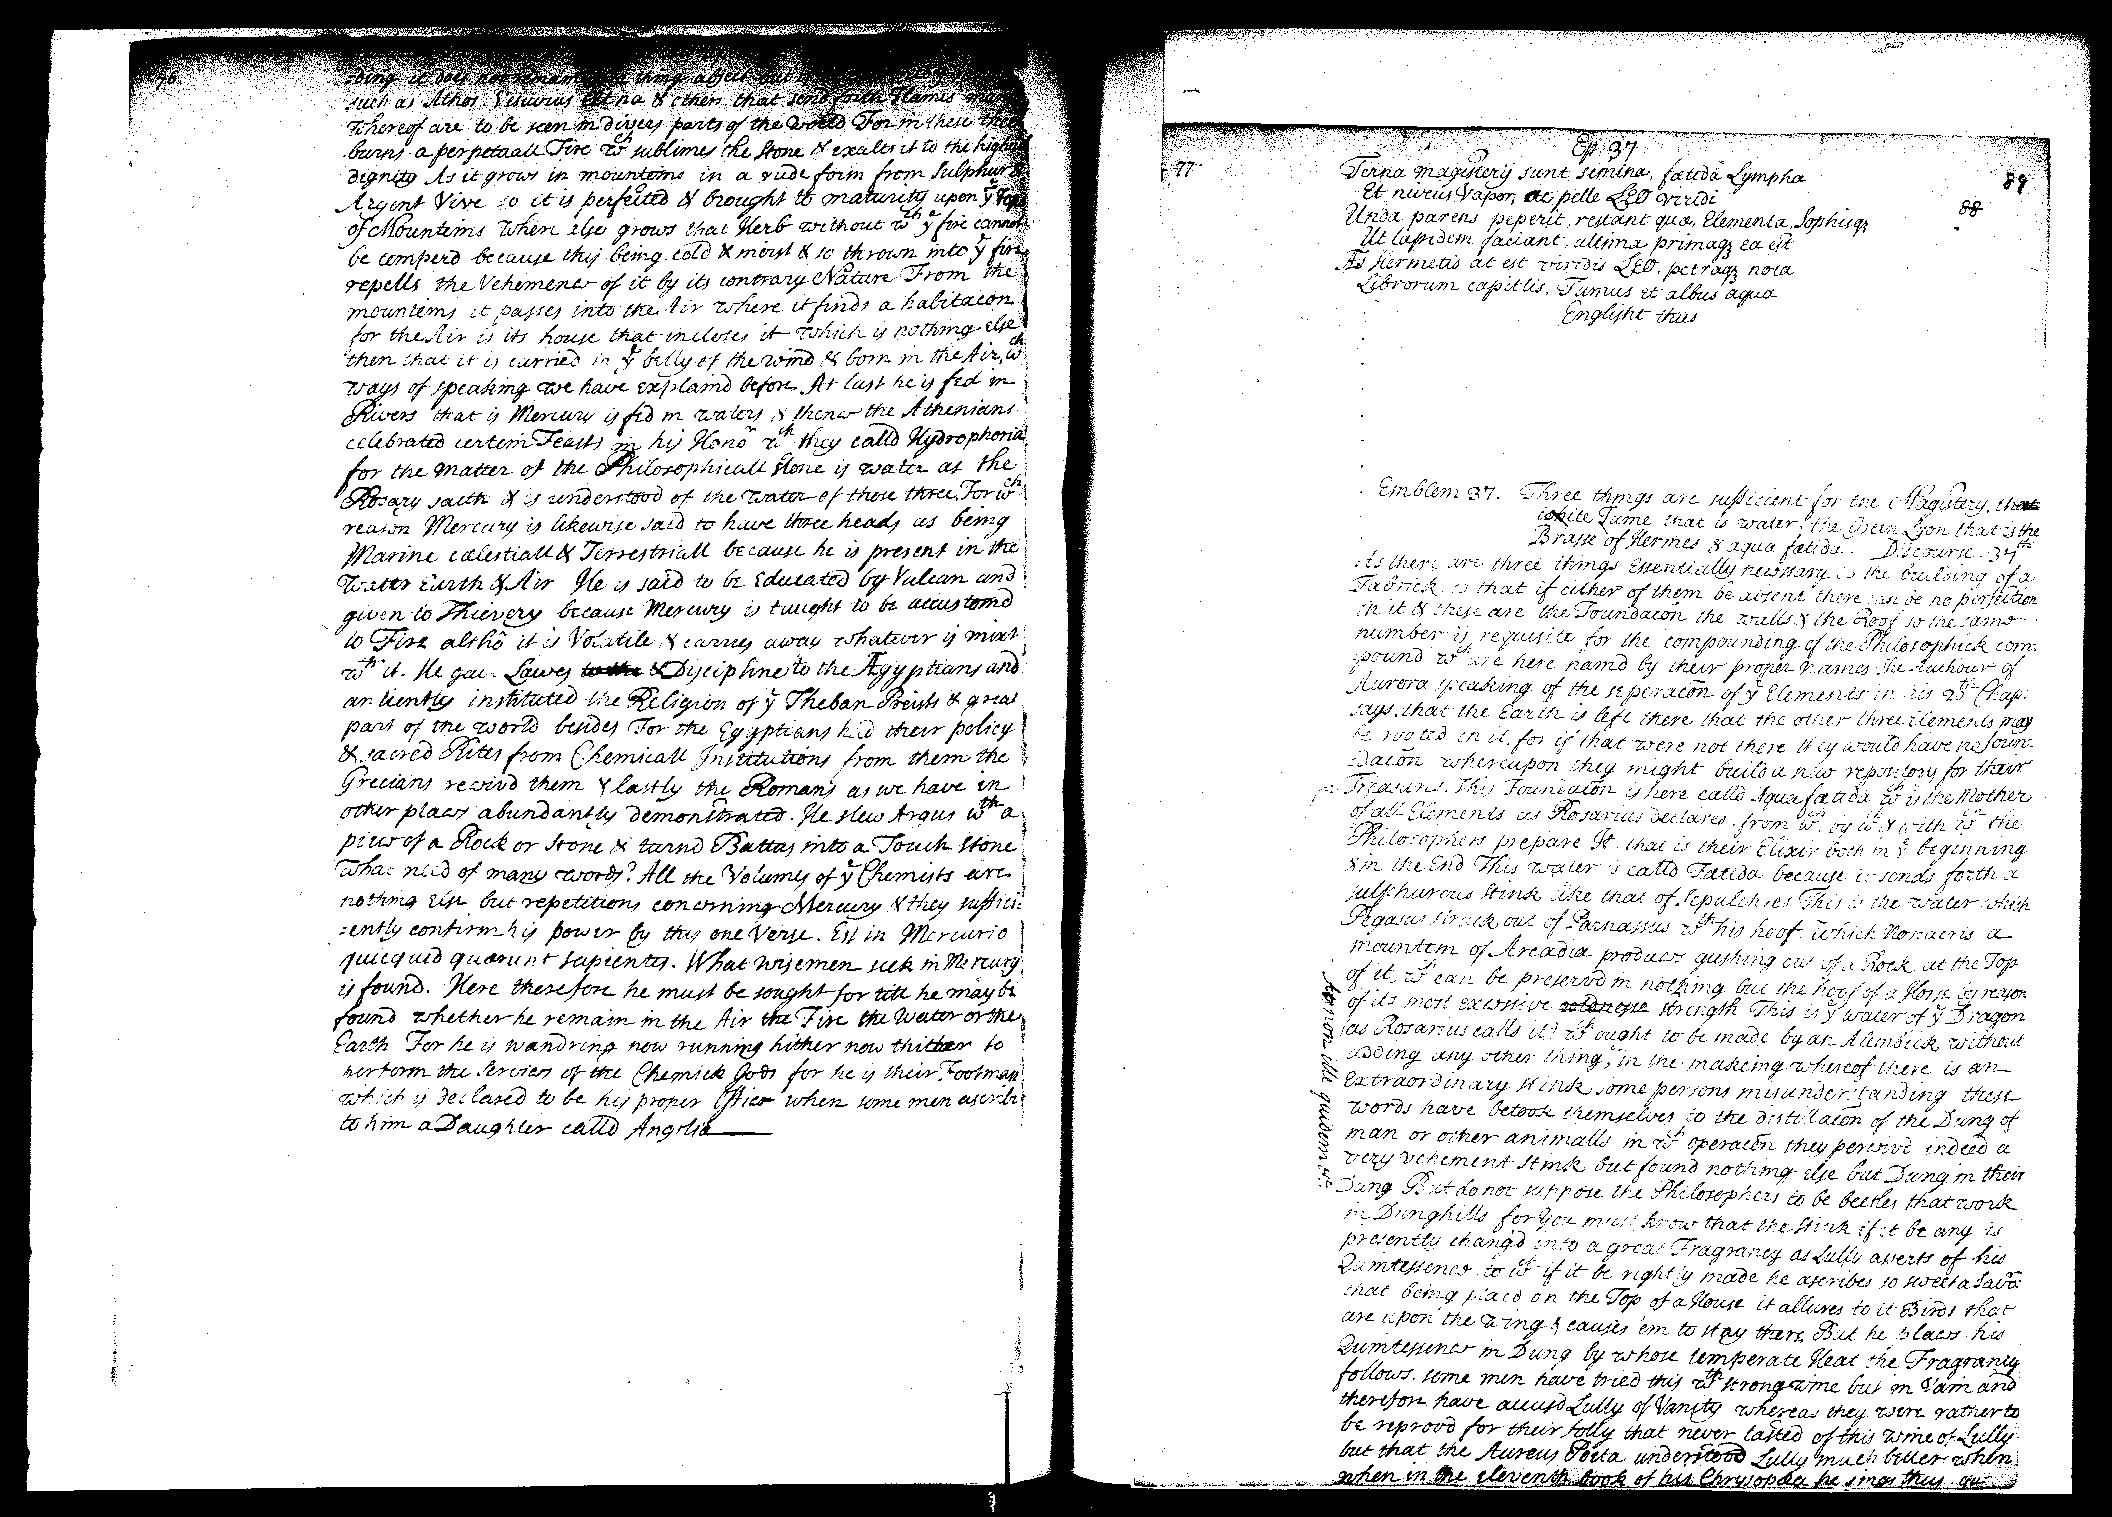 76
such as Athos Vesuvius Ætna & others that send forth Flames
Whereof are to be seen in divers parts of the World For in these
burns a perpetuall Fire wch sublimes the Stone & exalts it to the highest
dignity As it grows in mountains in a rude form from Sulphur &
Argent Vive so it is perfected & brought to maturity upon ye Tops
of Mountains where also grows that Herb without wch ye fire cannot
be temperd because this being cold & moist & so thrown into ye fire
repells the Vehemence of it by its contrary Nature From the
mountains it passes into the Air where it finds a habitacōn
for the Air is its house that incloses it which is nothing else
then that it is carried in ye belly of the wind & born in the Air, wch
ways of speaking we have explaind before At last he is fed in
Rivers that is Mercury is fed in waters & thence the Athenians
celebrated certein Feasts in his Honor wch they calld Hydrophoria
for the matter of the Philosophicall Stone is water as the
Rosary saith & is understood of the water of these three. For wch
reason Mercury is likewise said to have three heads as being
Marine cœlestiall & Terrestriall because he is present in the
Water Earth & Air He is said to be Educated by Vulcan and
given to Thievery because Mercury is taught to be accustomd
to Fire althō it is Volatile & carries away whatever is mixt
wth it. He gave Lawes to the & Discipline to the Ægyptians and
antiently instituted the Religion of ye Theban Preists & great
part of the world besides For the Egyptians had their policy
& sacred Rites from Chemicall Institutions from them the
Grecians receivd them & lastly the Romans as we have in
other places abundantly demonstrated. He slew Argus wth a
piece of a Rock or Stone & turnd Battas into a Touch stone
What need of many words? All the Volumes of ye Chemists are
nothing else but repetitions concerning Mercury & they suffici:
:ently confirm his power by this one Verse. Est in Mercurio
quicquid quærunt sapientes. What wisemen seek in Mercury
is found. Here therefore he must be sought for till he may be
found whether he remain in the Air the Fire the Water or the
Earth For he is wandring now running hither now thither to
perform the Services of the Chemick Gods for he is their Footman
which is declared to be his proper Office when some men ascribe
to him a Daughter calld Angelia
77
Ep 37
89
88
Terna magistery sunt semina, fœtida Lympha
Et niveus Vapor, ac pelle LEO viridi
Unda parens peperit, restant quæ, Elementa, Sophisq;
Ut lapidem faciant, ultima primaq; ea est
Æs Hermetis at est viridis LEO, petraq; nota
Librorum capitlis, Fumus et albus aqua
Englisht thus
Emblem 37. Three things are sufficient for the Magistery, that
white Fume that is water, the Green Lyon that is the
Brasse of Hermes & aqua fœtida. Discourse 37th
As there are three things Essentially necessary to the building of a
Fabrick so that if either of them be absent there can be no perfection
in it & these are the Foundacōn the walls & the Roof so the same
number is requisite for the compounding of the Philosophick com:
pound wch are here namd by their proper names The Authour of
Aurora speaking of the seperacōn of ye Elements in his Chap:
says, that the Earth is left there that the other three Elements may
be rooted in it, for if that were not there they would have no foun:
dacōn whereupon they might build a new repository for their
Treasures. This Foundacōn is here calld Aqua fœtida wch is the Mother
of all Elements as Rosarius declares, from wch, by wch & with wch the
Philosophers prepare It. that is their Elixir both in ye beginning
& in the End This water is calld Fœtida because it sends forth a
sulphureous stink like that of Sepulchres This is the water which
Pegasus struck out of Parnassus wth his hoof, which Nonacris a
mountain of Arcadia produces gushing out of a Rock at the Top
of it, wch can be preservd in nothing but the hoof of a Horse by reason
of its most excessive coldnesse strength This is ye water of ye Dragon
(as Rosarius calls it) wch ought to be made by an Alembick without
adding any other thing, in the making whereof there is an
Extraordinary stink some persons misunderstanding these
words have betook themselves to the distillacōn of the Dung of
man or other animalls in wch operacōn they perceivd indeed a
very vehement stink but found nothing else but Dung in their
Dung But do not suppose the Philosophers to be beetles that work
in Dunghills for You must know that the stink if it be any is
presently changd into a great Fragrancy as Lully averts of his
Quintessence to wch if it be rightly made he ascribes so sweet a Savōr
that being placd on the Top of a House it allures to it Birds that
are upon the wing & causes 'em to stay there But he places his
Quintessence in Dung by whose temperate Heat the Fragrancy
follows. some men have tried this wth strong wine but in Vain and
therefore have accusd Lully of Vanity whereas they were rather to
be reprovd for their folly that never tasted of this wine of Lully
but that the Aureus Poeta understood Lully much better when
when in the eleventh book of his Chrysopœia he sings thus
ille quidem &c